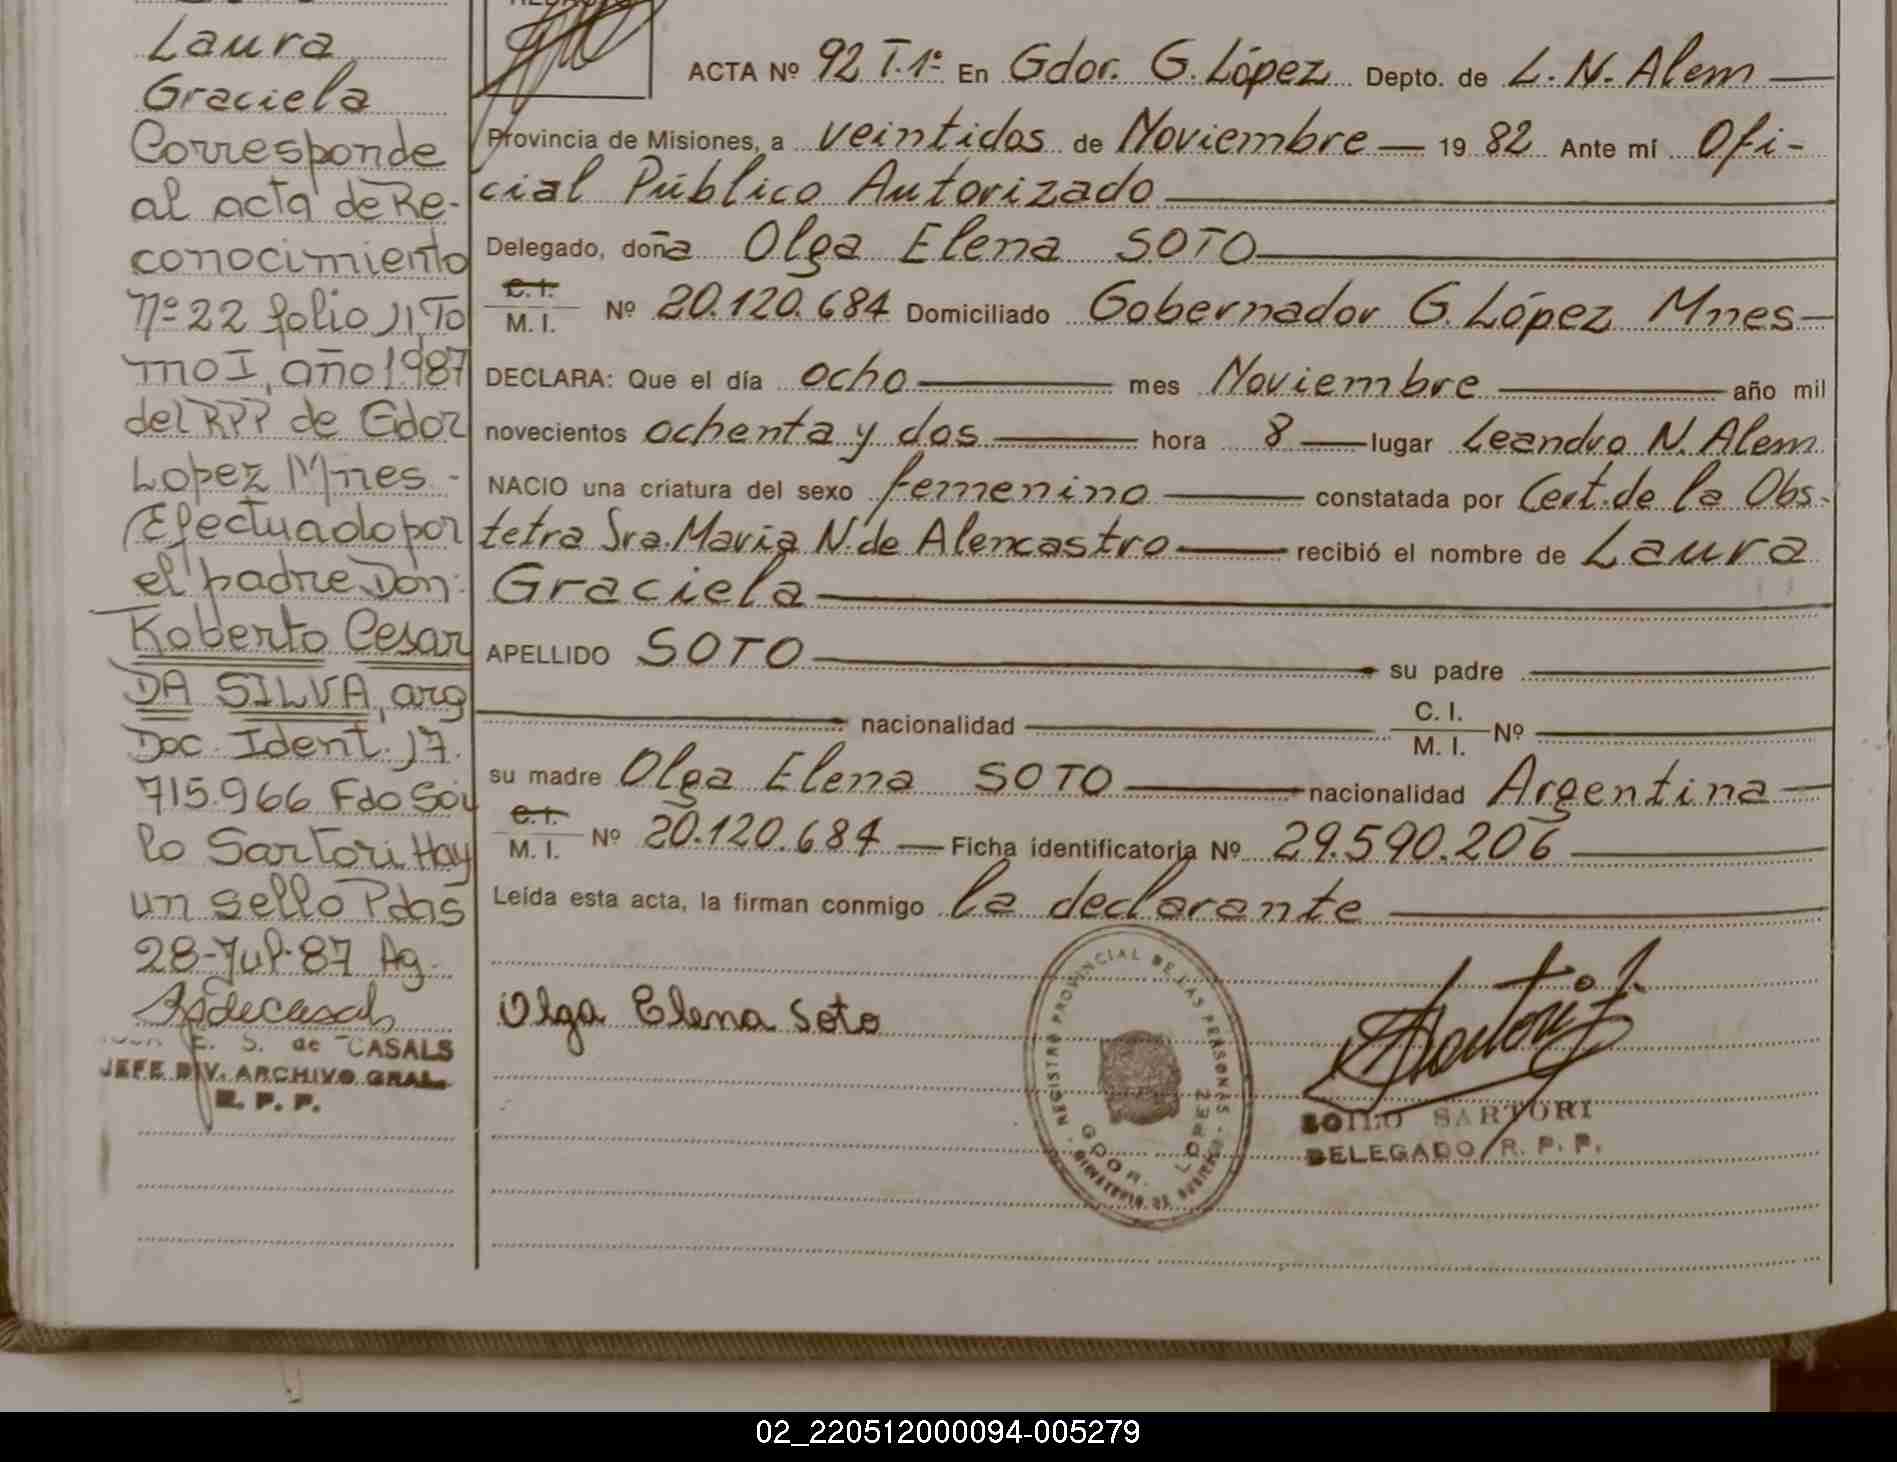 Laura
Graciela
Corresponde
al acta de Re-
conocimiento
nº 22 folio 11, To
mo I, año 1987
del RPP de Gdor
Lopez Mnes -
Efectuado por
el padre Don:
Roberto Cesar
DA SILVA, arg
Doc. Ident. 17.
715.966 Fdo Soi
lo Sartori. Hay
un sello Pdas
28-Jul-87 Ag.
E. S. de CASALS
JEFE DIV. ARCHIVO GRAL.
R. P. P.
ACTA Nº 92 T.1º En Gdor. G. López Depto. de L. N. Alem
Provincia de Misiones, a veintidos de Noviembre 19 82 Ante mí Ofi-
cial Público Autorizado
Delegado, doña Olga Elena SOTO
C. I.
M. I. Nº 20.120.684 Domiciliado Gobernador G. López Mnes
DECLARA: Que el día ocho mes Noviembre año mil
novecientos ochenta y dos hora 8 lugar Leandro N. Alem
NACIO una criatura del sexo femenino constatada por Cert. de la Obs-
tetra Sra. María N. de Alencastro recibió el nombre de Laura
Graciela
APELLIDO SOTO su padre
nacionalidad C. I. M. I. Nº
su madre Olga Elena SOTO nacionalidad Argentina
C. I.
M. I. Nº 20.120.684 Ficha identificatoria Nº 29.590.206
Leída esta acta, la firman conmigo la declarante
Olga Elena Soto
REGISTRO PROVINCIAL DE LAS PERSONAS
GDOR. LOPEZ
Sartori
SOILO SARTORI
DELEGADO R. P. P.
02_220512000094-005279